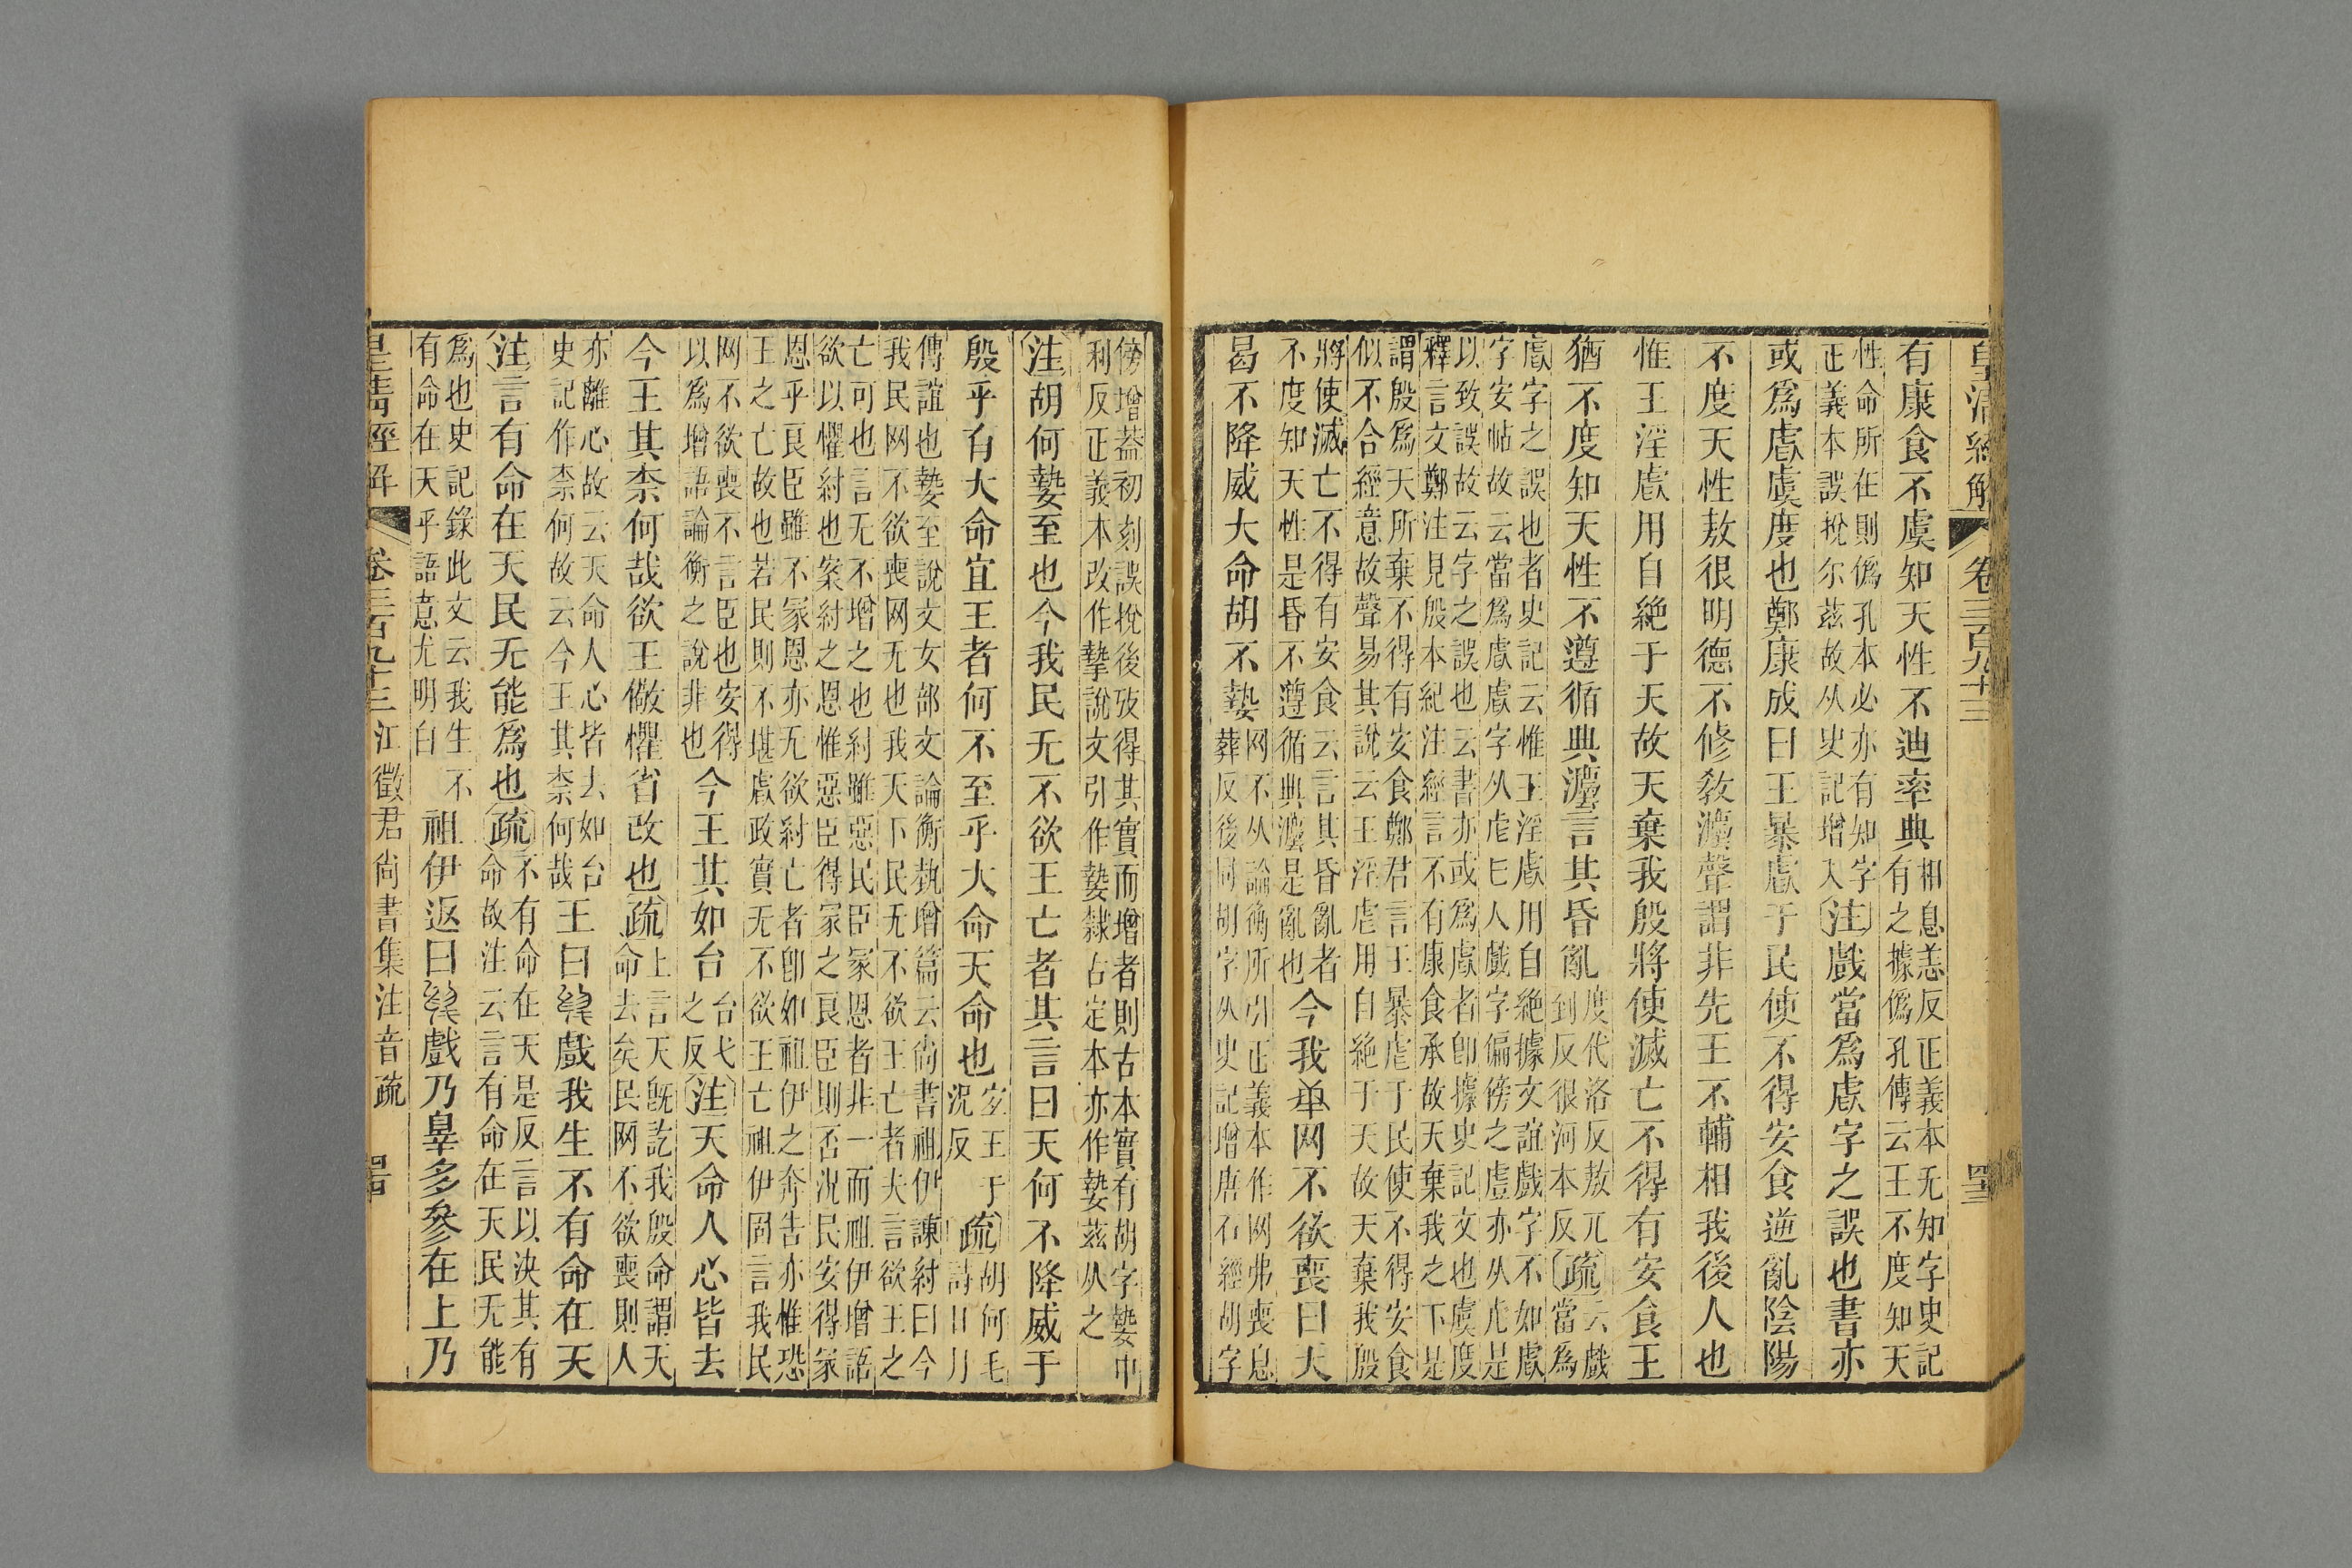 皇清經解 卷三百九十三
有康食不虞知天性不迪率典
相息恙反正義本无知字史記
有之據僞孔傳云王不度知天
性命所在則僞孔本必亦有知字
正義本誤挩尔茲故从史記增入
注戲當爲虐字之誤也書亦
或爲虐虞度也鄭康成曰王暴虐于民使不得安食逆亂陰陽
不度天性敖很明德不修教灋聲謂非先王不輔相我後人也
惟王淫虐用自絕于天故天棄我殷將使滅亡不得有安食王
猶不度知天性不遵循典灋言其昏亂
度代洛反敖兀
到反很河本反
疏
云戲
當爲
虐字之誤也者史記云惟王淫虐用自絕據文誼戲字不如虐
字安帖故云當爲虐虐字从虍𠤎人戲字偏傍之䖒亦从虍是
以致誤故云字之誤也云書亦或爲虐者卽據史記文也虞度
釋言文鄭注見殷本紀注經言不有康食承故天棄我之下是
謂殷爲天所棄不得有安食鄭君言王暴虐于民使不得安食
似不合經意故聲易其說云王淫虐用自絕于天故天棄我殷
將使滅亡不得有安食云言其昏亂者
不度知天性是昏不遵循典灋是亂也
今我民网不欲喪曰天
曷不降威大命胡不摯
网不从論衡所引正義本作网弗喪息
葬反後同胡字从史記增唐石經胡字
傍增葢初刻誤挩後攷得其實而增者則古本實有胡字摯中
利反正義本改作摯說文引作𡠗隸古定本亦作𡠗茲从之
注胡何𡠗至也今我民无不欲王亡者其言曰天何不降威于
殷乎有大命宜王者何不至乎大命天命也
宐王于
況反
疏
胡何毛
詩日月
傳誼也𡠗至說文女部文論衡埶增篇云尙書祖伊諫紂曰今
我民网不欲喪网无也我天下民无不欲王亡者夫言欲王之
亡可也言无不增之也紂雖惡民臣冡恩者非一而祖伊增語
欲以懼紂也案紂之恩惟惡臣得冡之良臣則否況民安得冡
恩乎良臣雖不冡恩亦无欲紂亡者卽如祖伊之奔告亦惟恐
王之亡故也若民則不堪虐政實无不欲王亡祖伊固言我民
网不欲喪不言臣也安得
以爲增語論衡之說非也
今王其如台
台弋
之反
注天命人心皆去
今王其柰何哉欲王儆懼省改也疏
上言天旣訖我殷命謂天
命去矣民网不欲喪則人
亦離心故云天命人心皆去如台
史記作柰何故云今王其柰何哉
王曰烏戲我生不有命在天
注言有命在天民无能爲也疏
不有命在天是反言以決其有
命故注云言有命在天民无能
爲也史記錄此文云我生不
有命在天乎語意尤明白
祖伊返曰烏戲乃辠多參在上乃
皇清經解 卷三百九十三 江徵君尙書集注音疏